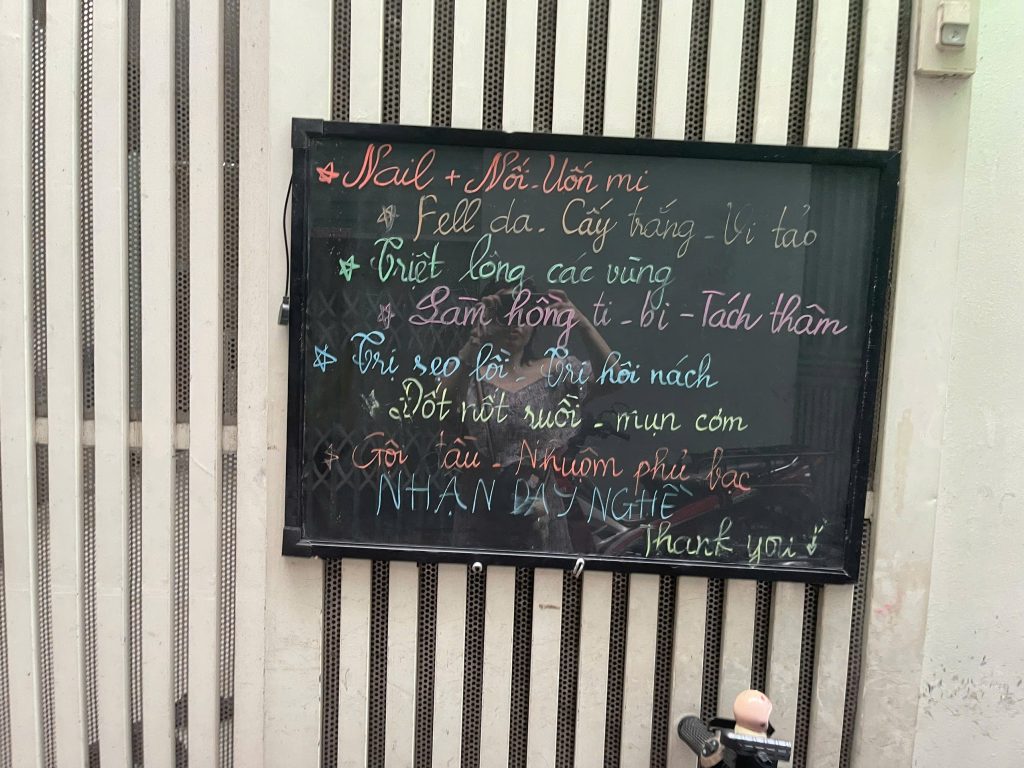 Nail + Nối - Uốn mi
Fell da - Cấy trắng - Vi tảo
Triệt lông các vùng
Làm hồng ti - bi - Tách thâm
Trị sẹo lồi - Trị hôi nách
Đốt nốt ruồi - mụn cơm
Gội đầu - Nhuộm phủ bạc
NHẬN DẠY NGHỀ
Thank you